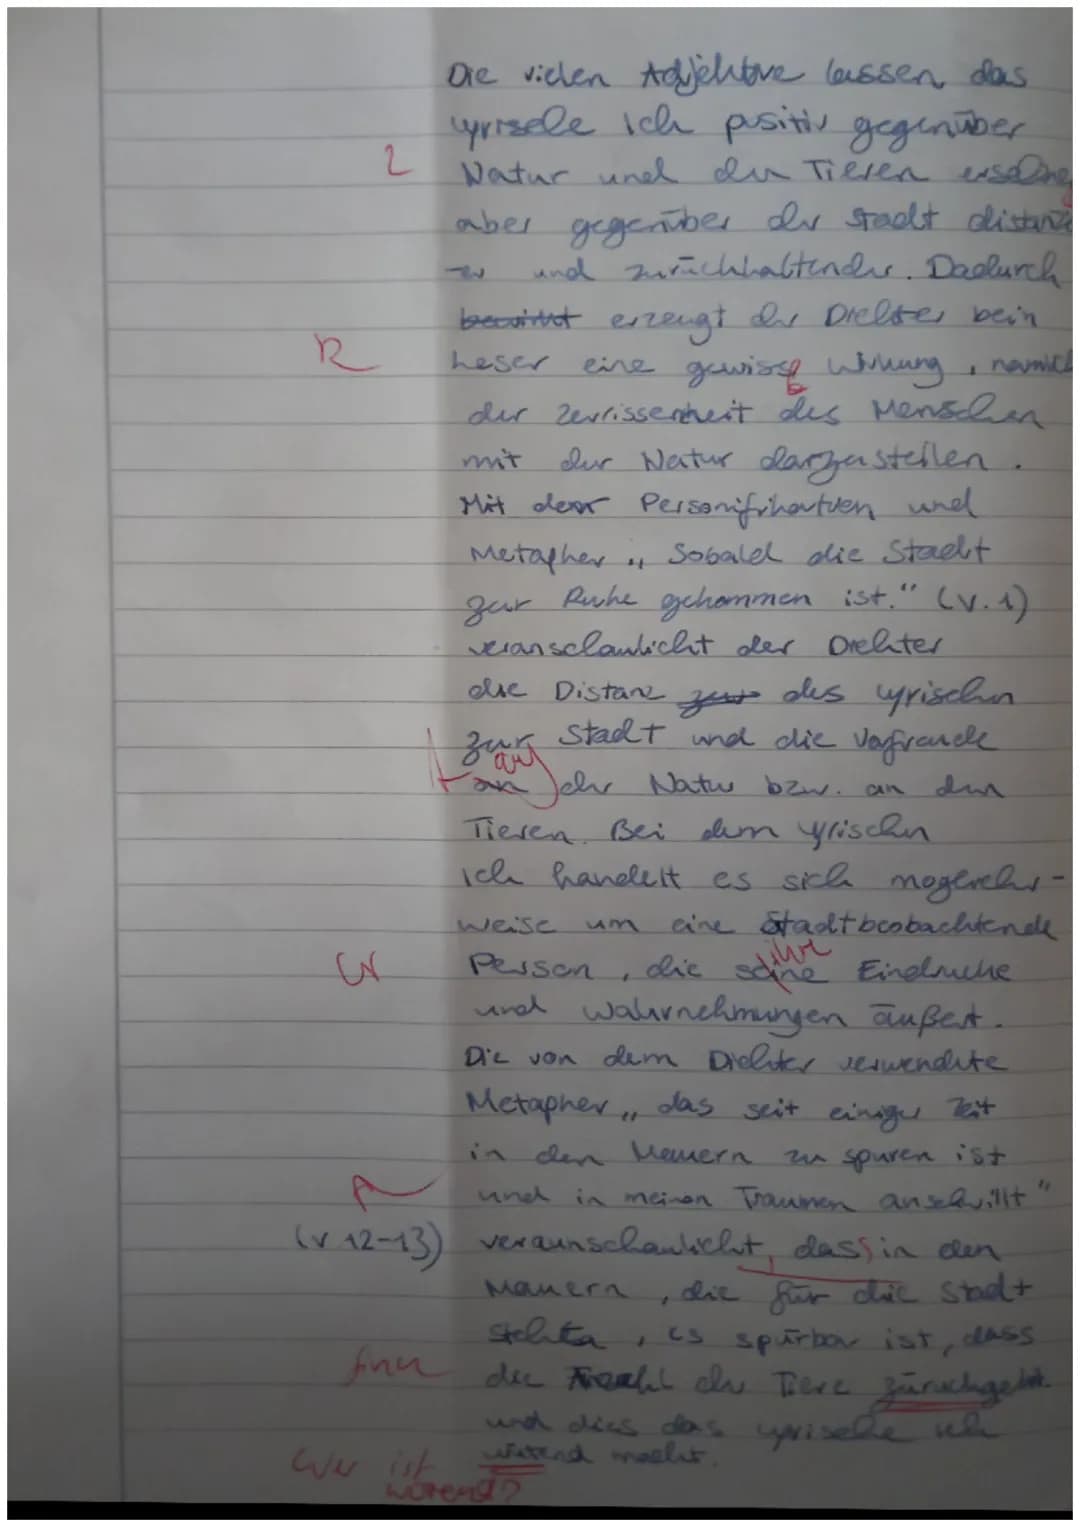 Die vielen Adjektive lassen das
lyrische Ich positiv gegenüber
Z Natur und den Tieren
aber gegenüber der Stadt distanz
-er und zurückhaltender. Dadurch
bewirkt erzeugt der Dichter bein
R Leser eine gewisse Wirkung, nämlich
der Zerrissenheit des Menschen
mit der Natur darzustellen.
Mit der und
Metapher „Sobald die Stadt
zur Ruhe gekommen ist." (V. 1)
veranschaulicht der Dichter
die Distanz zur des lyrischen
zur Stadt und die Vorfreude
A an auf der Natur bzw. an den
Tieren. Bei dem lyrischen
Ich handelt es sich
weise um eine Stadtbeobachtende
Gr Person, die seine ihre Eindrucke
und Wahrnehmungen äußert.
Die von dem Dichter verwendete
Metapher „das seit einiger Zeit
in den Mauern zu spuren ist
A und in meinen Traumen anschwillt"
(V 12-13) veraunschaulicht, dass in den
Mauern, die für die Stadt
, es spürbar ist, dass
die Anzahl der Tiere zurückgeht
und dies das lyrische Ich
Wer ist wütend macht.
wütend?